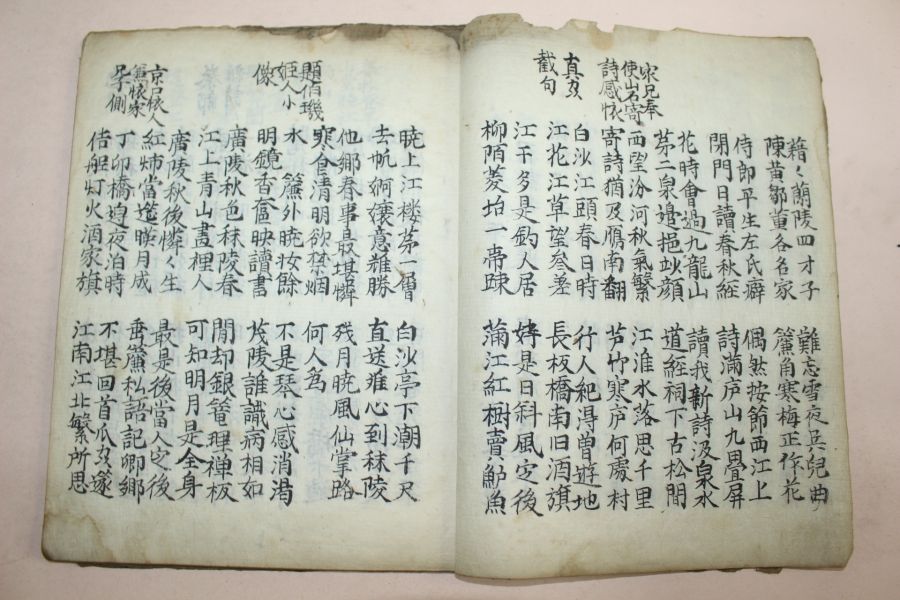 籍々蘭陵四才子 難忘雪夜兵兒曲
陳黃鄒董各名家 簾角寒梅正作花
侍郎平生左氏癖 偶然按節西江上
閉門日讀春秋經 詩滿庐山九疊屏
花時會過九龍山 讀我新詩汲泉水
苐二泉邊挹妙顔 道經祠下古松間
家兄奉使山右寄詩感懷
西望汾河秋氣繁 江淮水落思千里
寄詩猶及鴈南翻 芦竹寒庐何處村
真州截句
白沙江頭春日時 行人紀得曾遊地
江花江草望參差 長板橋南旧酒旗
江干多是釣人居 好是日斜風定後
柳陌菱坮一帶踈 滿江紅樹賣鲈魚
曉上江楼苐一層 白沙亭下潮千尺
去帆婀嬝意難勝 直送離心到秣陵
他鄉春事最堪憐 残月曉風仙掌路
寒食清明欲禁烟 何人為
題伯璣姬人小像
水簾外曉妆餘 不是琴心感消渴
明鏡香奩映讀書 茂陵誰識病相如
廣陵秋色秣陵春 閒却銀篭理禅板
江上青山畫裡人 可知明月是全身
京口懷人
廣陵秋後憐々生 最是後當人定後
紅姊當邀暎月成 垂簾私語記卿卿
丁卯橋邊夜泊時 不堪回首瓜州遂
估船灯火酒家旗 江南江北繫所思